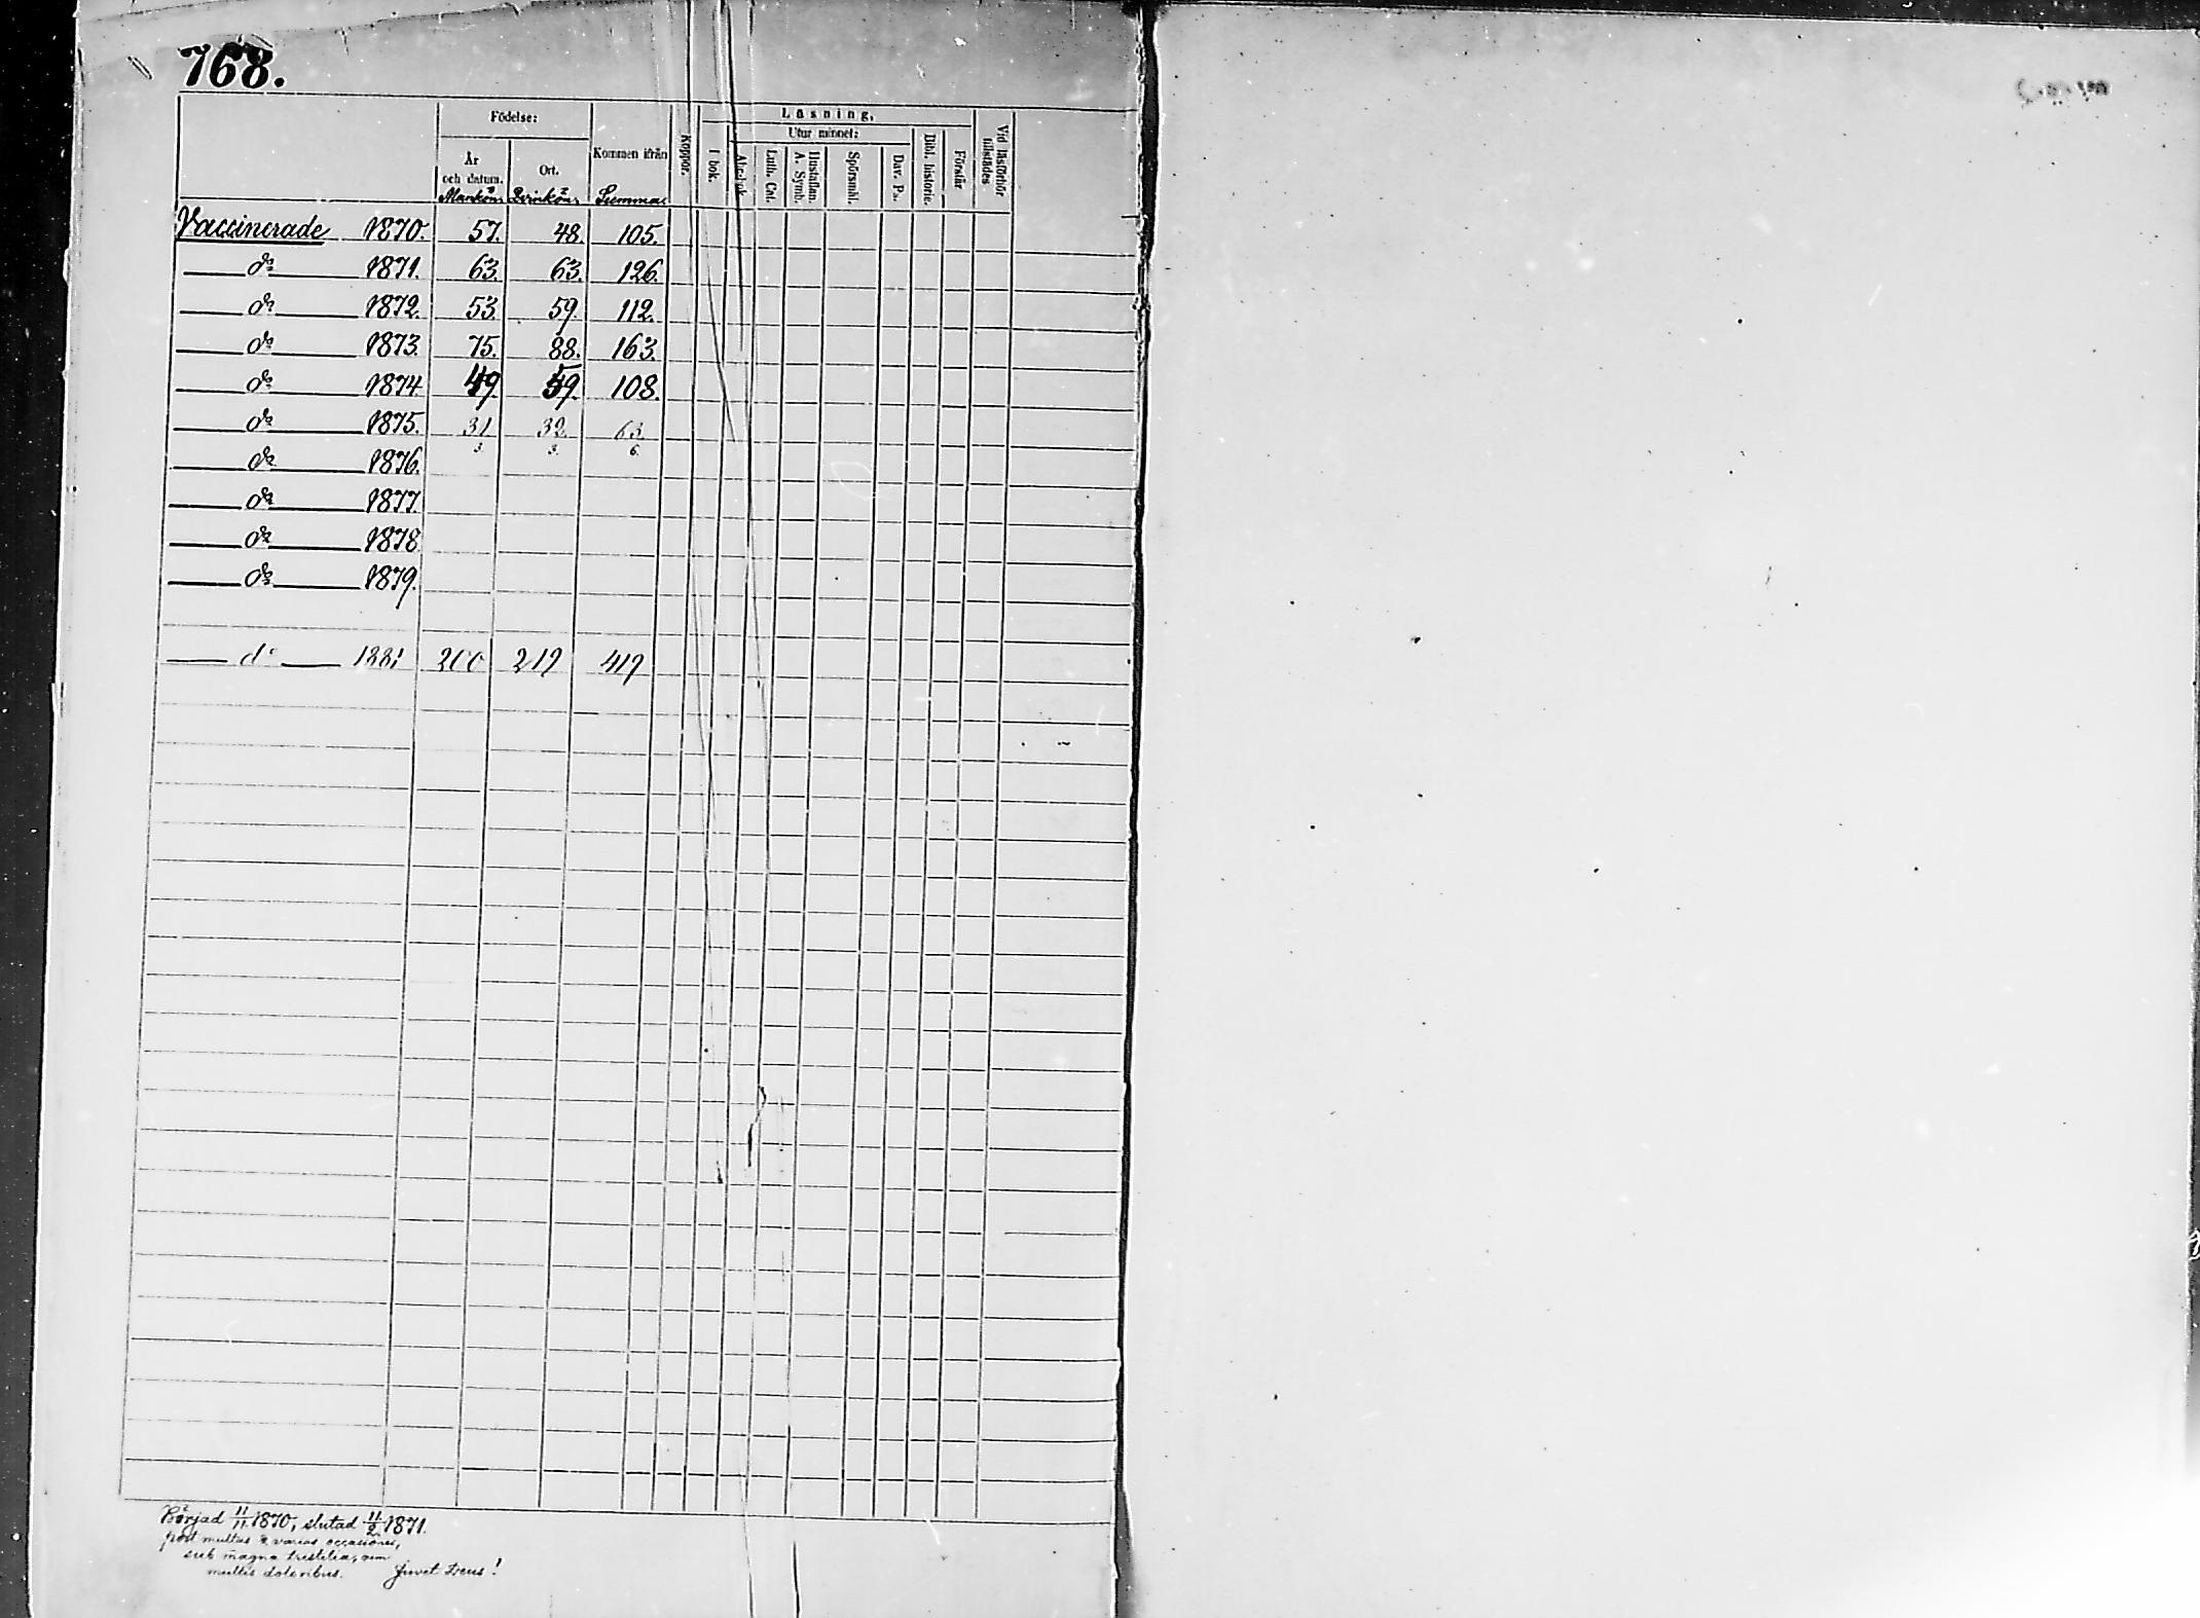 768.
Födelse:
Läsning,
Utur minnet:
År och datum.
Ort.
Kommen ifrån
Koppor.
I bok.
Abc-bok.
Luth. Cat.
Hustaflan. A. Symb.
Spörsmål.
Dav. Ps.
Bibl. historie.
Förstår
Vid läsförhör tillstädes
Mankön, Qvinkön, Summa
Vaccinerade 1870. 57. 48. 105.
do 1871. 63. 63. 126.
do 1872. 53. 59. 112.
do 1873. 75. 88. 163.
do 1874. 49. 59. 108.
do 1875. 31 32. 63.
3. 3. 6.
do 1876.
do 1877.
do 1878.
do 1879.
do 1881 200 219 419
Börjad 11/11 1870, slutad 11/2 1871.
post multas & varias occasiones,
sub magna tristitia,
multis doloribus. Juvet Deus!